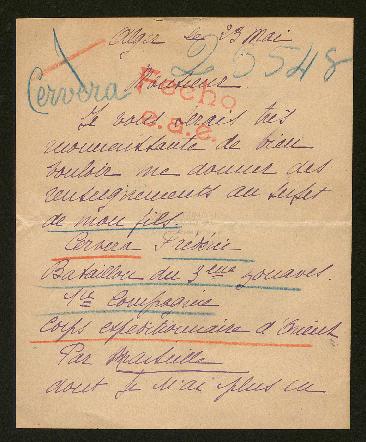 Alger le 23 Mai
25548
Monsieur
Cervera
Fecho
e.a.e.
Je vous serais très
reconnaissante de bien
vouloir me donner des
renseignements au sujet
de mon fils
Cervera Frédéric
Bataillon du 3eme zouaves.
1ère Compagnie
Corps expéditionnaire d'Orient
Par Marseille
dont je n'ai plus eu